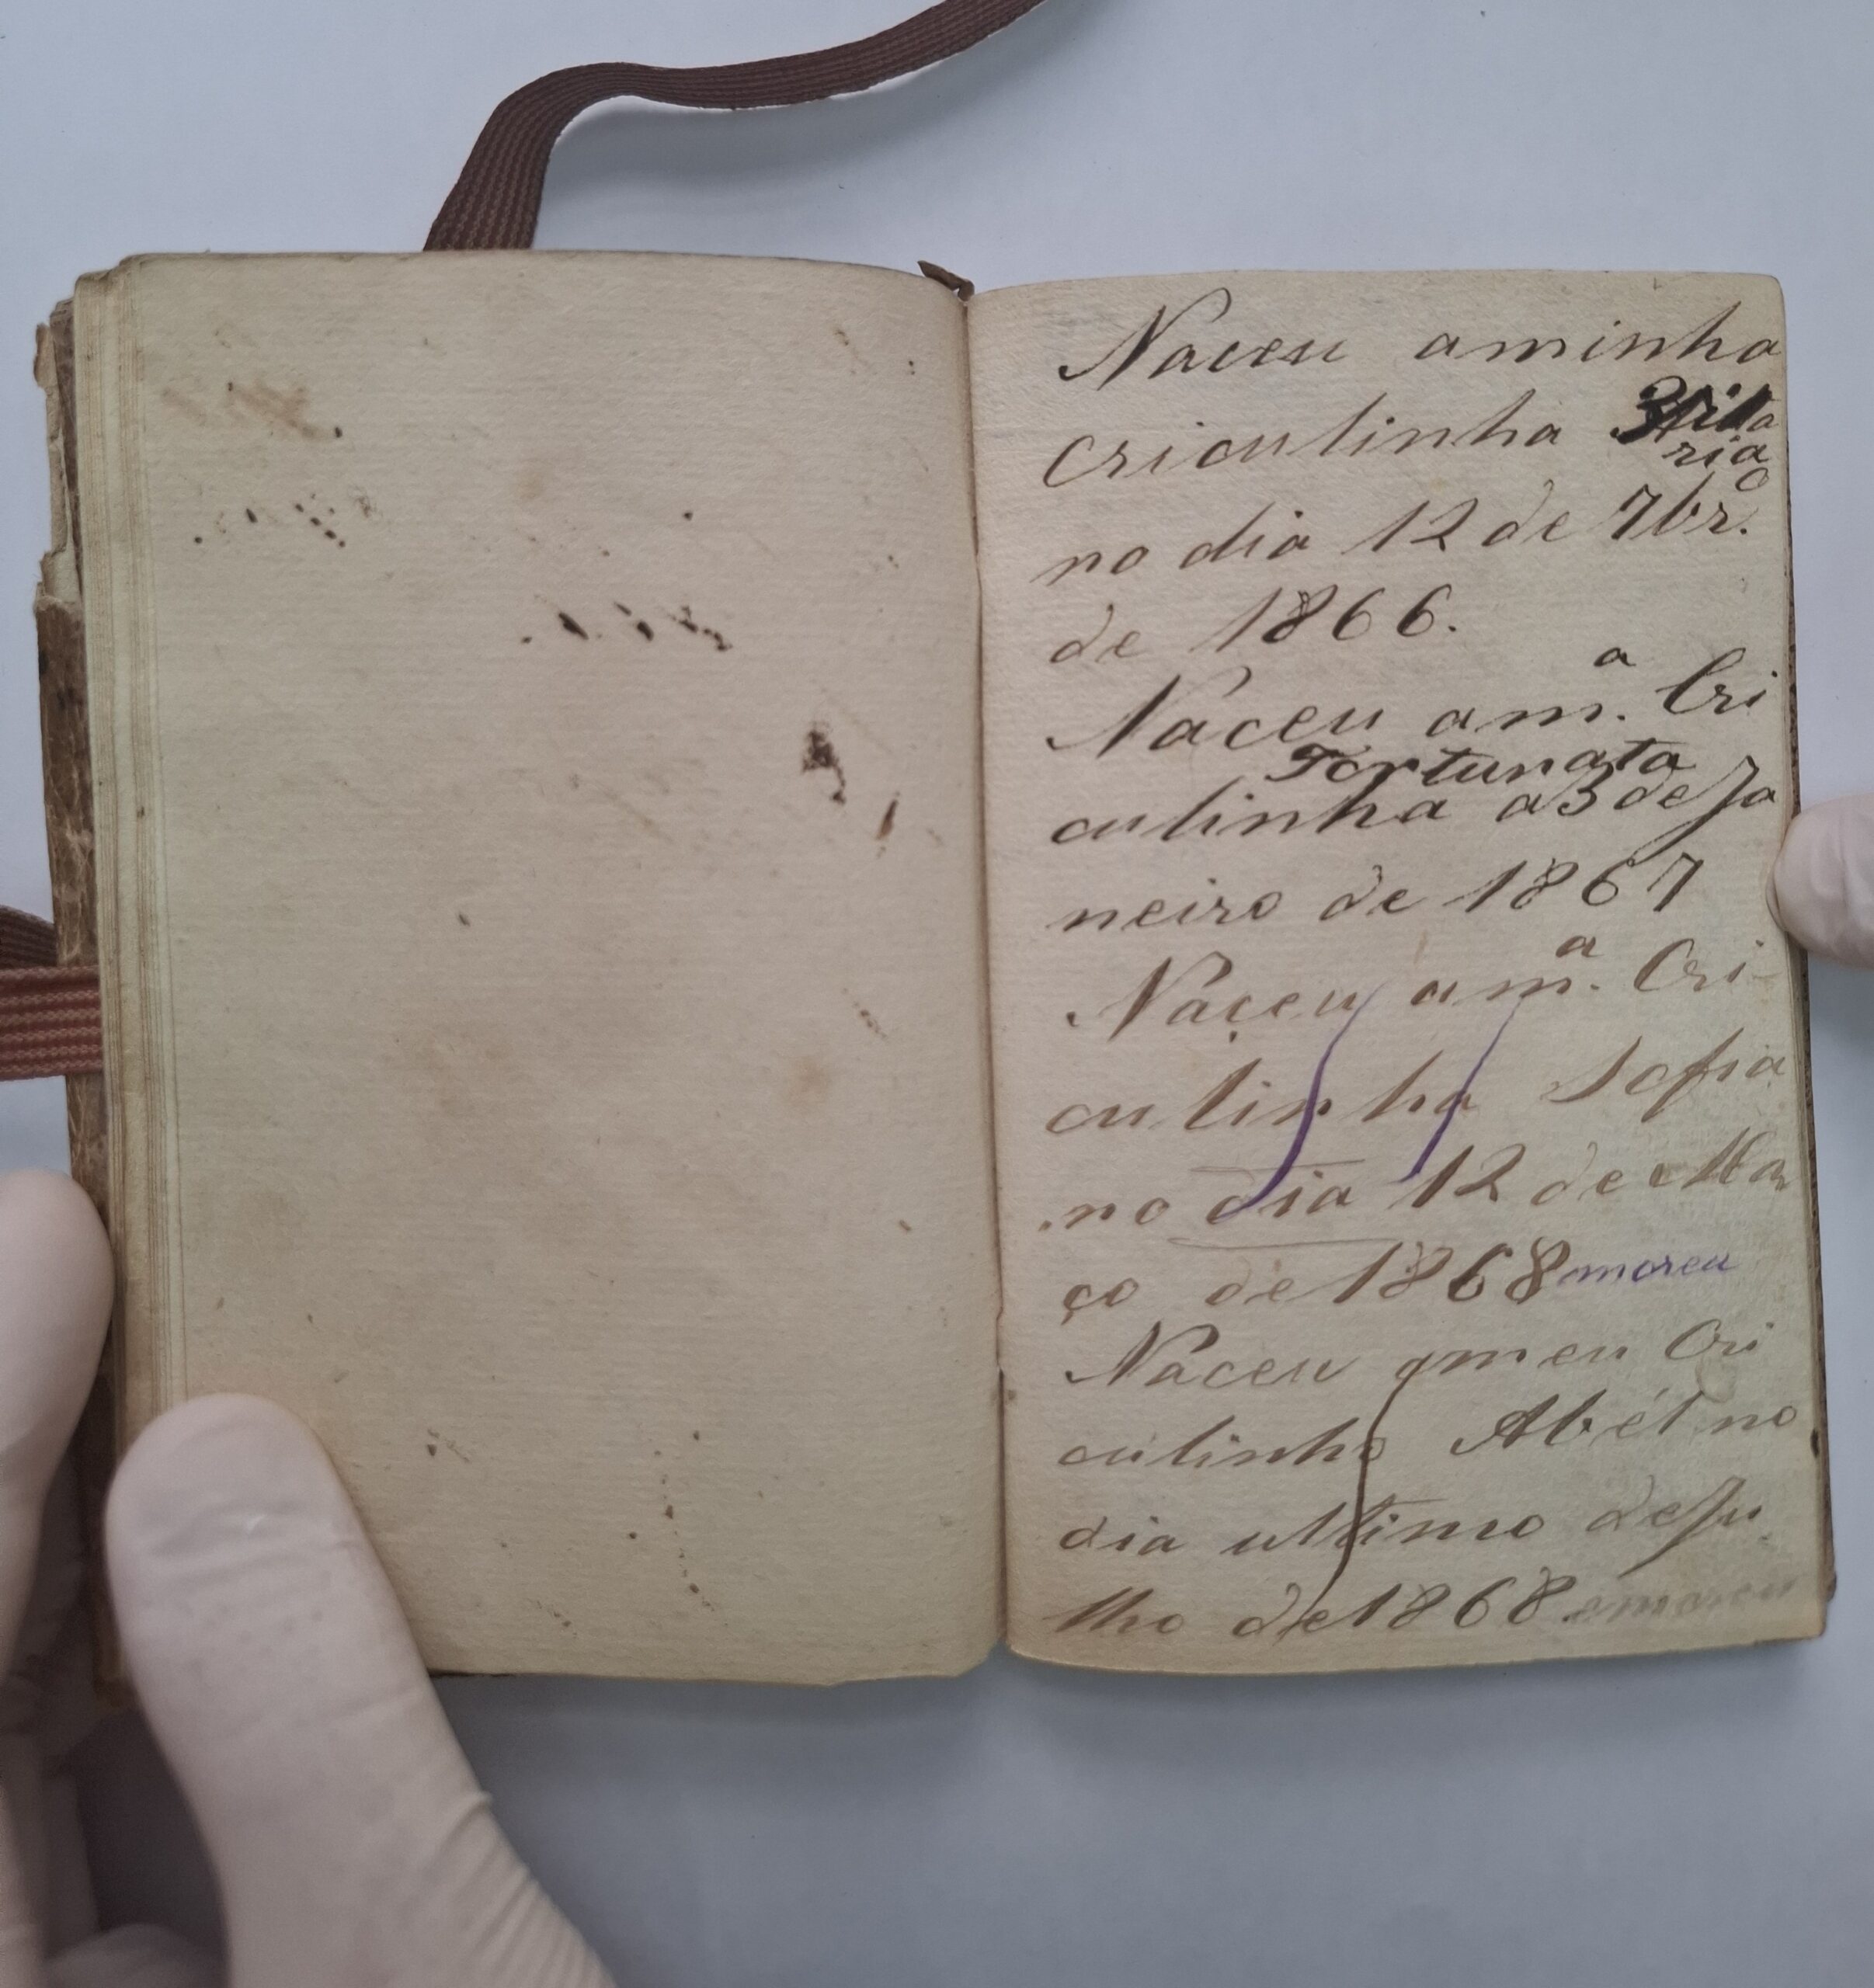 Naceu aminha
crioulinha
ria
no dia 12 de 7br.o
de 1866.
Naceu a m.a Cri
Fortunata
oulinha a 3 de Ja
neiro de 1867
Naceu a m.a Cri-
oulinha Sofia
no dia 12 de Mar
ço de 1868 moreu
Naceu o meu Cri
oulinho Abel no
dia ultimo de Ju
lho de 1868 e moreu